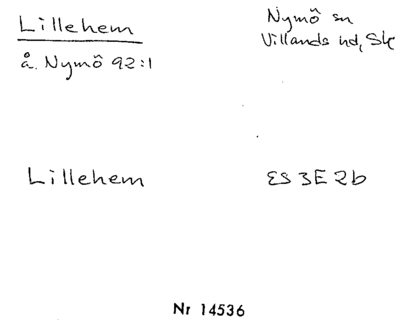 Lillehem
Nymö sn
Villands hd, Sk
å. Nymö 92:1
Lillehem
ES 3E 2b
Nr 14536